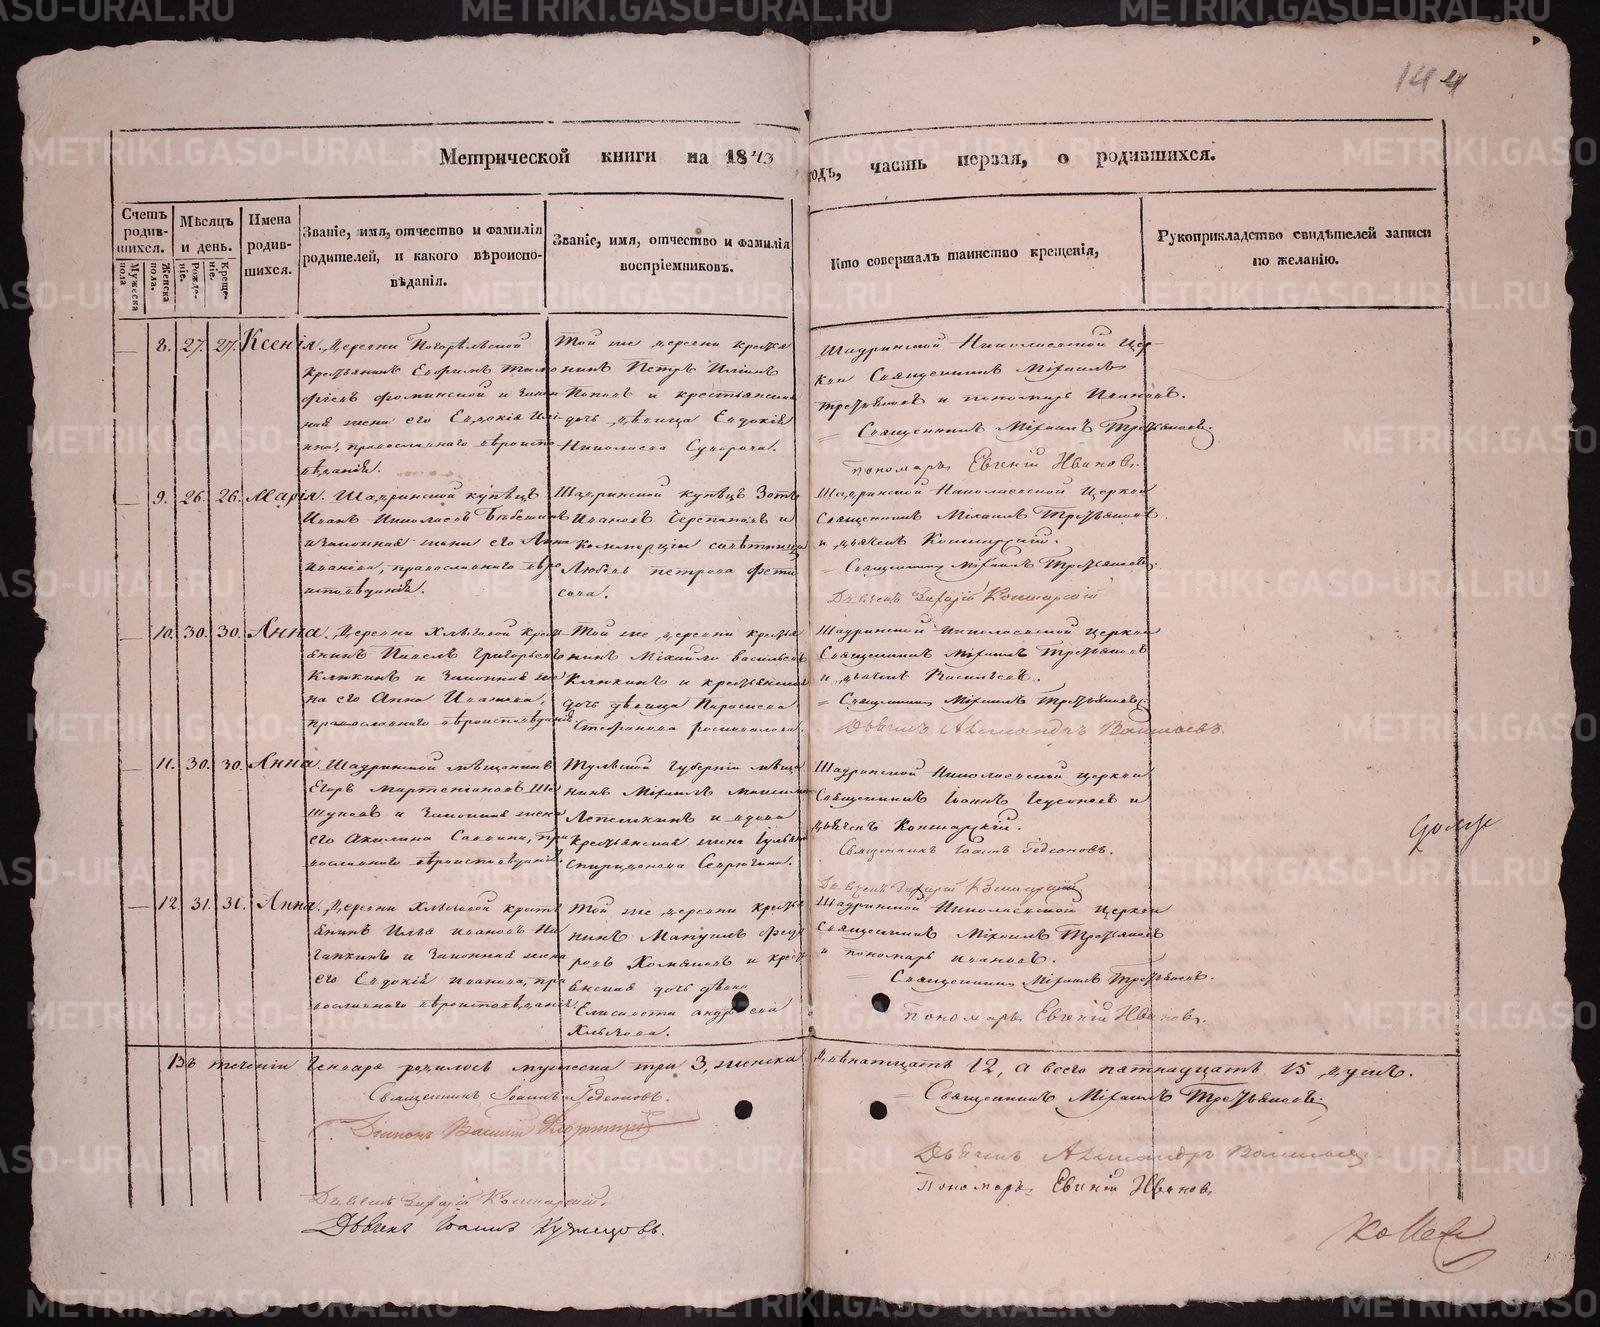 144
Метрической книги на 1843
одъ, часть первая, о родившихся.
Счетъ родив-шихся.
Мужеска пола
Женска пола.
Мѣсяцъ и день.
Рожде-нiе.
Креще-нiе.
Имена родив-шихся.
Званiе, имя, отчество и фамилiя родителей, и какого вѣроиспо-вѣданiя.
Званiе, имя, отчество и фамилiя воспрiемниковъ.
Кто совершалъ таинство крещенiя,
Рукоприкладство свидѣтелей записи по желанiю.
8. 27. 27. Ксенiя.
Деревни
крестьянинъ Ефримъ Тимо
фѣевъ и закон
ная жена его Евдокiя Илi
ина, православнаго вѣроиспо
вѣданiя.
Той же деревни крестья
нинъ Петръ Илiинъ
Поповъ и крестьянская
дочь дѣвица Евдокiя
Николаева Суворова.
Шадринской Николаевской Цер
кви Священникъ Мiхаилъ
Третьяковъ и пономарь Ивановъ.
Священникъ Мiхаилъ Третьяковъ.
Пономарь Евгенiй Ивановъ.
9. 26. 26. Марiя.
Шадринской купецъ
Иванъ Николаевъ
и законная жена его Анна
Иванова, православнаго вѣро
исповѣданiя.
Шадринской купецъ Зотъ
Ивановъ Черепановъ и
коммерцiи совѣтница
Любовь Петрова Фети
сова.
Шадринской Николаевской Церкви
Священникъ Мiхаилъ Третьяковъ
и дьячекъ
Священникъ Мiхаилъ Третьяковъ.
Дьячекъ
10. 30. 30. Анна.
Деревни Хлызовой крест
янинъ Павелъ Григорьевъ
Клюкинъ и законная же
на его Анна Иванова,
православнаго вѣроисповѣданiя.
Той же деревни крестья
нинъ Мiхайло Васильевъ
Клюкинъ и крестьянская
дочь дѣвица Параскева
Стефанова
Шадринской Николаевской Церкви
Священникъ Мiхаилъ Третьяковъ
и дьячекъ Васильевъ.
Священникъ Мiхаилъ Третьяковъ.
Дьячекъ Александръ Васильевъ.
11. 30. 30. Анна.
Шадринской мѣщанинъ
Егоръ Ше
и законная жена
его Акилина Саввина, пра
вославнаго вѣроисповѣданiя.
Тульской Губернiи мѣща
нинъ Мiхаилъ
Лепешкинъ и вдова
крестьянская жена Iульянiя
Спиридонова
Шадринской Николаевской церкви
Священникъ Iоаннъ Гедеоновъ и
дьячекъ
Священникъ Iоаннъ Гедеоновъ.
Дьячекъ
12. 31. 31. Анна.
Деревни Хлызовой кресть
янинъ Илья Ивановъ
и законная жена
его Евдокiя Иванова, пра
вославнаго вѣроисповѣданiя.
Той же деревни крестья
нинъ Мануилъ Федо
ровъ и кресть
янская дочь дѣвка
Елисавета Андреева
Хлызова.
Шадринской Николаевской Церкви
Священникъ Мiхаилъ Третьяковъ
и пономарь Ивановъ.
Священникъ Мiхаилъ Третьяковъ.
Пономарь Евгенiй Ивановъ.
Въ теченiи Генваря родилось мужеска три 3, женска двѣнатцать 12, а всего пятнадцать 15 душъ.
Священникъ Iоаннъ Гедеоновъ.
Священникъ Мiхаилъ Третьяковъ.
Дiаконъ Василiй
Дьячекъ Александръ Васильевъ.
Пономарь Евгенiй Ивановъ.
Дьячекъ
Дьячекъ Iоаннъ Кузнецовъ.
METRIKI.GASO-URAL.RU